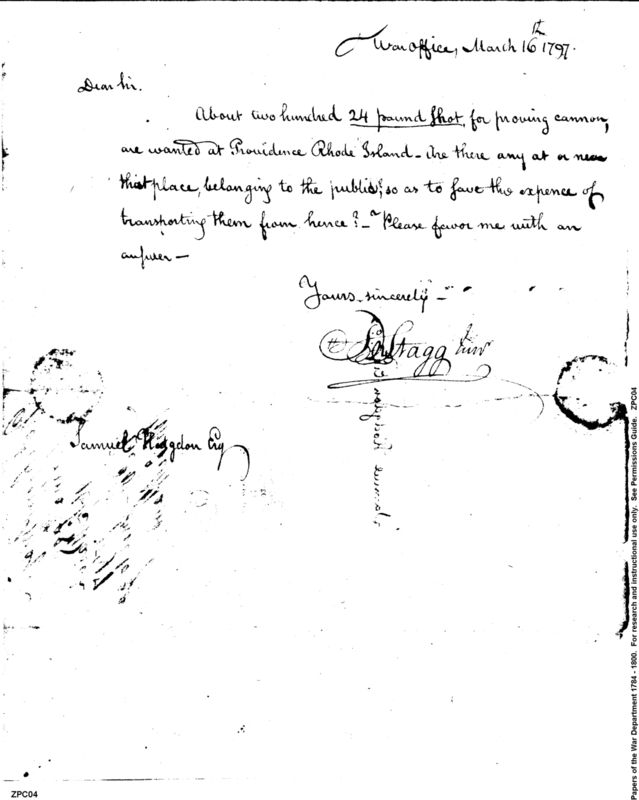 War office, March 16th 1797.
Dear sir.
About two hundred 24 pound shot, for proving cannon,
are wanted at Providence Rhode Island – Are there any at or near
that place, belonging to the public, so as to save the expence of
transporting them from hence? – Please favor me with an
answer –
Yours sincerely –
Stagg Junr
Samuel Hodgdon Esq
Papers of the War Department 1784 - 1800. For research and instructional use only. See Permissions Guide. ZPC04
ZPC04